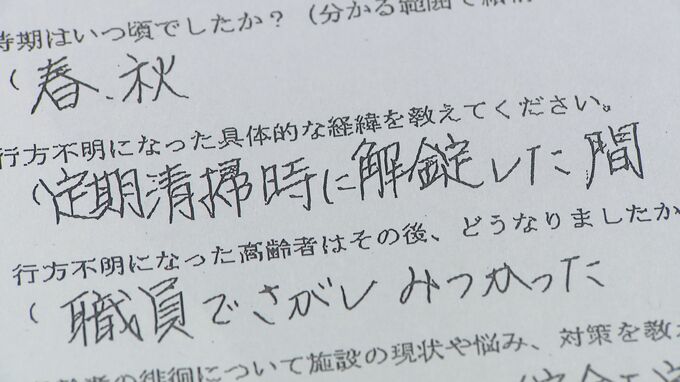 時期はいつ頃でしたか？（分かる範囲で
（春、秋
行方不明になった具体的な経緯を教えてください。
（定期清掃時に解錠した間
行方不明になった高齢者はその後、どうなりましたか
（職員でさがしみつかった
の徘徊について施設の現状や悩み、対策を教え